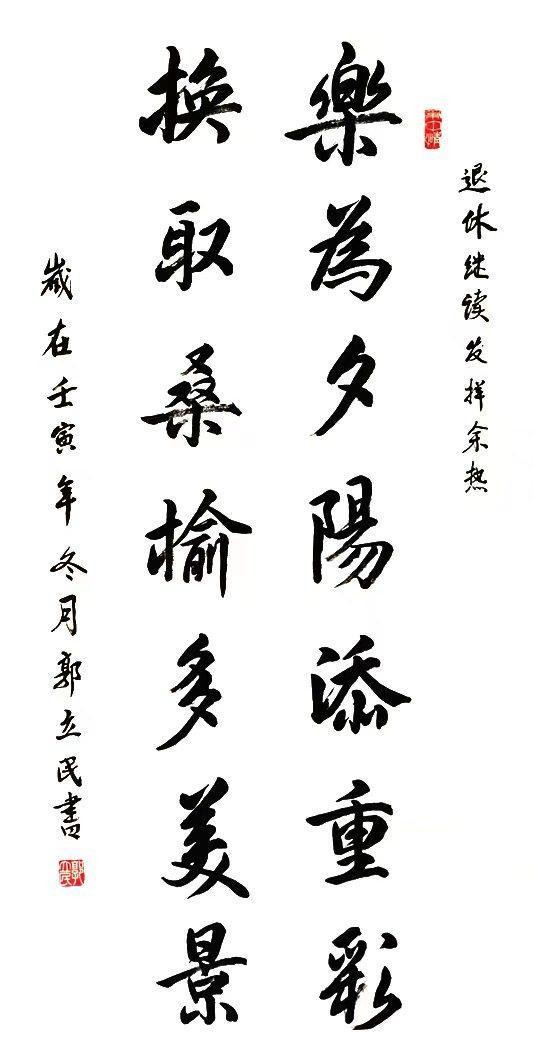 退休继续发挥余热
樂為夕陽添重彩
換取桑榆多美景
歲在壬寅年冬月郭立民書